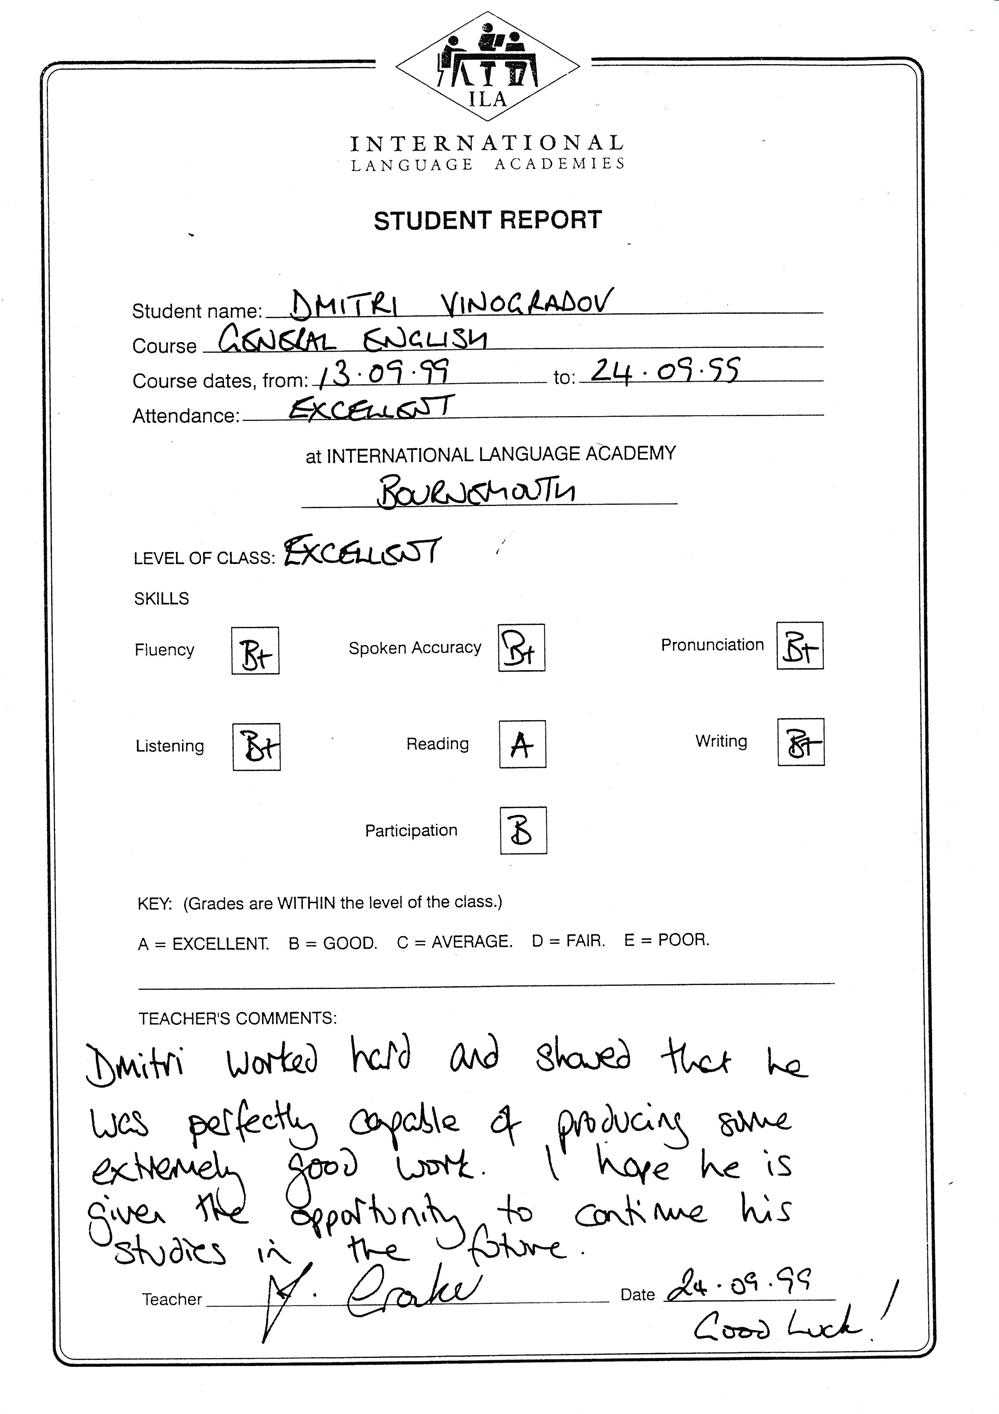 ILA
INTERNATIONAL
LANGUAGE ACADEMIES
STUDENT REPORT
Student name: DMITRI VINOGRADOV
Course GENERAL ENGLISH
Course dates, from: 13.09.99 to: 24.09.99
Attendance: EXCELLENT
at INTERNATIONAL LANGUAGE ACADEMY
BOURNEMOUTH
LEVEL OF CLASS: EXCELLENT
SKILLS
Fluency B+ Spoken Accuracy B+ Pronunciation B+
Listening B+ Reading A Writing B+
Participation B
KEY: (Grades are WITHIN the level of the class.)
A = EXCELLENT. B = GOOD. C = AVERAGE. D = FAIR. E = POOR.
TEACHER'S COMMENTS:
Dmitri worked hard and showed that he
was perfectly capable of producing some
extremely good work. I hope he is
given the opportunity to continue his
studies in the future.
Teacher Date 24.09.99
Good Luck!